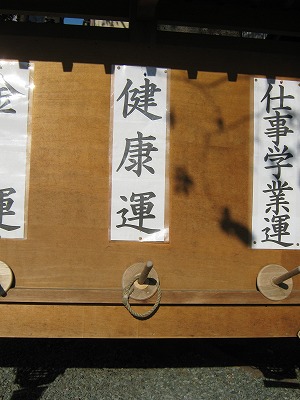 金運
健康運
仕事学業運